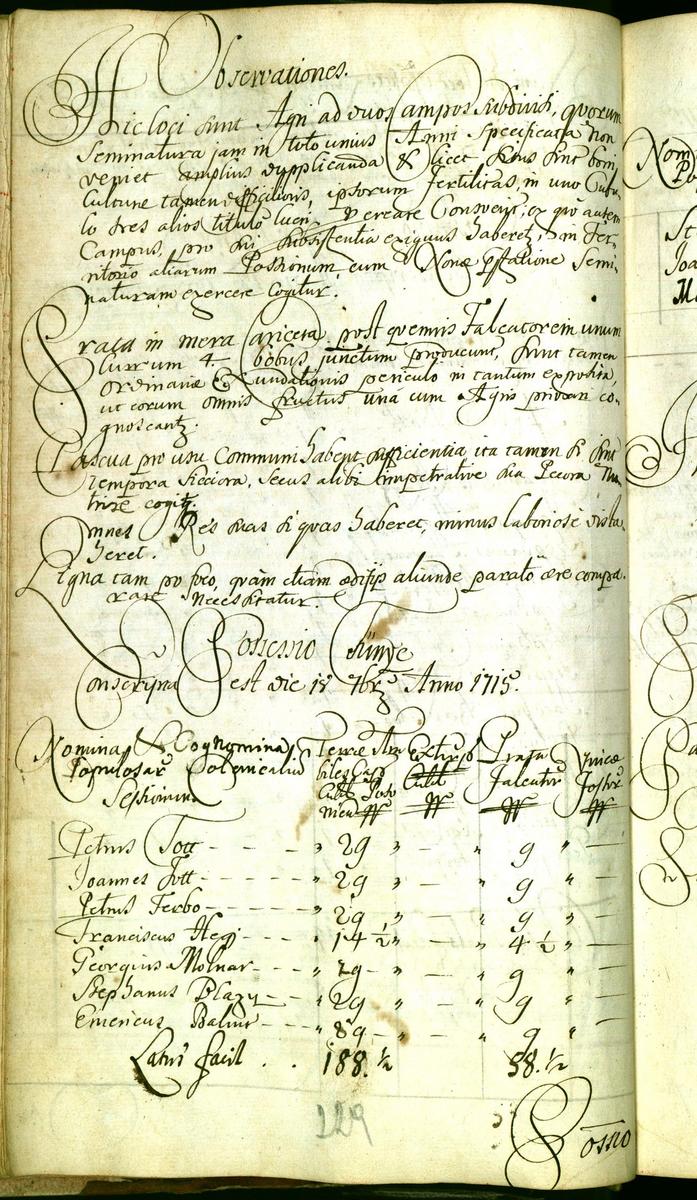 Observationes.
Hic loci sunt Agri ad duos Campos subdivisi, quorum
Seminatura jam in toto unius Anni Specificata non
veniet amplius dupplicanda & licet hius sint boni
Culture tamen difficilioris, ipsorum fertilitas, in uno Cubu-
lo tres alios titulo lucri procreare Consvevit, ex quo autem
Campus, pro sui subsistentia exiguus haberet, in Ter-
ritorio aliarum Possionum, cum Nonæ pstatione Semi-
naturam exercere Cogitur.
Prata in mera Cariceta, post quemvis Falcatorem unum
Currum 4 bobus junctum producunt, sunt tamen
Ordinariæ Exundationis periculo in tantum exposita,
ut eorum omnis fructus una cum Agris privari co-
gnoscant.
Pascua pro usu Communi habent sufficientia, ita tamen si sint
tempora sicciora, secus alibi impetrative sua Pecora nu-
trire cogit.
Omnes Res suas si quas haberet, minus laboriose dista-
heret.
Ligna tam pro foco, quàm etiam ædifijs aliunde parato ære compa-
rare Necessitatur.
Possessio
Conscripta est die 18 7br Anno 1715.
Nomina & Cognomina Terræ Ara Extirp Prata Vineæ
Populosar Colonicaliu biles Falcator Fossor
Sessionum Cult Cult
Petrus Tott - - - - " 29 " - " 9 " -
Joannes Tott - - - - - " 29 " - " 9 " -
Petrus Ferbo - - - - - " 29 " - " 9 " -
Franciscus Hegi - - - - " 14 ½ " - " 4 ½ " -
Georgius Molnar - - - " 29 - " - " 9 " -
Stephanus Blazy - - - " 29 " - " 9 " -
Emericus - - - - " 89 - " - " 9 " -
Latus facit . . 188. ½ 58. ½
229
Possio
Nom
Po
St
Joa
Ma